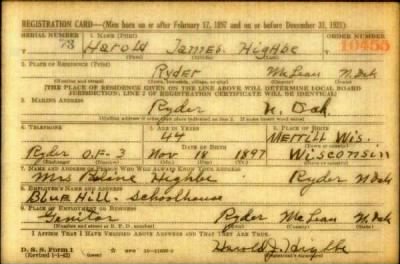 REGISTRATION CARD—(Men born on or after February 17, 1897 and on or before December 31, 1921)
SERIAL NUMBER 1. NAME (Print) ORDER NUMBER
73 Harold James Highbe 10455
(First) (Middle) (Last)
2. PLACE OF RESIDENCE (Print)
Ryder McLean N. Dak
(Number and street) (Town, township, village, or city) (County) (State)
[THE PLACE OF RESIDENCE GIVEN ON THE LINE ABOVE WILL DETERMINE LOCAL BOARD
JURISDICTION; LINE 2 OF REGISTRATION CERTIFICATE WILL BE IDENTICAL]
3. MAILING ADDRESS
Ryder N. Dak.
4. TELEPHONE 5. AGE IN YEARS 6. PLACE OF BIRTH
44 Merrill Wis.
DATE OF BIRTH
Ryder O.F-3 Nov 18 1897 Wisconsin
(Exchange) (Number) (Mo.) (Day) (Yr.) (State or country)
7. NAME AND ADDRESS OF PERSON WHO WILL ALWAYS KNOW YOUR ADDRESS
Mrs Highbe Ryder N Dak
8. EMPLOYER'S NAME AND ADDRESS
Blue Hill. Schoolhouse
9. PLACE OF EMPLOYMENT OR BUSINESS
Genitor Ryder McLean N. Dak
(Number and street or R. F. D. number) (Town) (County) (State)
I AFFIRM THAT I HAVE VERIFIED ABOVE ANSWERS AND THAT THEY ARE TRUE.
D. S. S. Form 1
(Revised 1-1-42) Harold J. Highbe
(Registrant's signature)